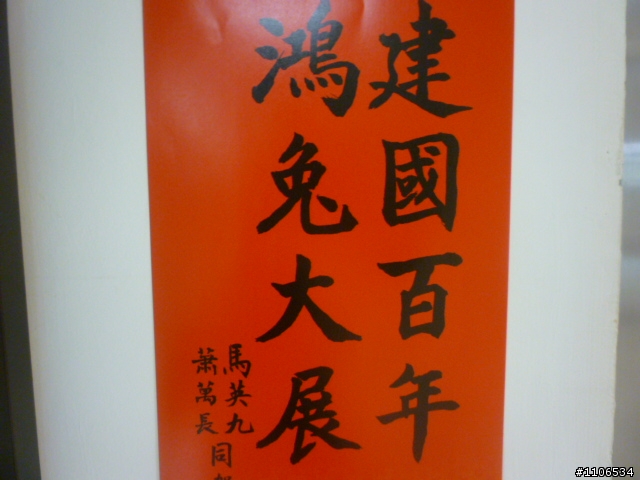 建國百年
鴻兔大展
馬英九
蕭萬長
同
#1106534